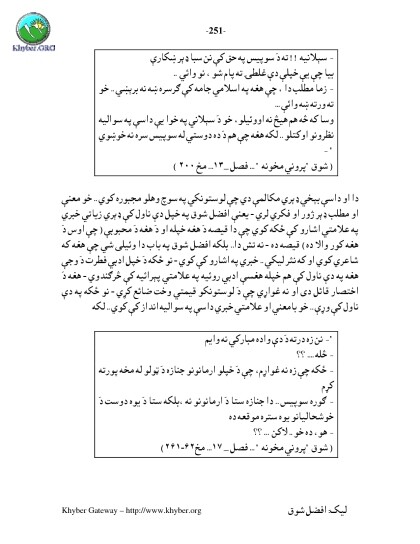 -251-
Khyber.ORG
- سېلانیه !! ته د سوېیس په حق کې نن سبا ډېر ښکاري
بیا چې یې خپلې دې غلطۍ ته پام شو ، نو وائي ..
- زما مطلب دا ، چې هغه په اسلامي جامه کې ګرسره ښه نه برېښي.. خو
ته ورته ښه وائې...
وسا که څه هم هیڅ نه اووئیلو ، خو د سېلانۍ په خوا یې داسې په سوالیه
نظرونو اوکتلو .. لکه هغه چې هم د ده دوستي له سوېیس سره نه خوښوي
" ..
( شوق "پروني مخونه "... فصل _ ١٣... مخ ٢٠٠ )
دا او داسې بېخي ډېرې مکالمې دي چې لوستونکي په سوچ وهلو مجبوره کوي.. خو معنې
او مطلب ډېر ژور او فکري لري - یعنې افضل شوق په خپل دې ناول کې ډېرې زیاتې خبرې
په علامتي اشارو کې ځکه کوي چې دا قیصه د هغه خپله او د هغه د محبوبې ( چې اوس د
هغه کور والا ده ) قیصه ده - نه تش دا.. بلکه افضل شوق په باب دا وئیلی شي چې هغه که
شاعري کوي او که نثر لیکي - خبرې په اشارو کې کوي - نو ځکه د خپل ادبي فطرت د وچې
هغه په دې ناول کې هم خپله هغسې ادبي روئیه په علامتي پېرائیه کې څرګندوي - هغه د
اختصار قائل دی او نه غواړي چې د لوستونکو قیمتي وخت ضائع کړي - نو ځکه په دې
ناول کې وړې.. خو بامعنې او علامتي خبرې داسې په سوالیه انداز کې کوي.. لکه
"- نن زه درته د دې واده مبارکي نه وایم
- څله .... ؟؟
- ځکه چې زه نه غواړم، چې د خپلو ارمانونو جنازه د ټولو له مخه پورته
کړم
- ګوره سوېیس.. دا جنازه ستا د ارمانونو نه ،بلکه ستا د یوه دوست د
خوشحالیانو یوه ستره موقعه ده
- هو ، ده خو ..لاکن .... ؟؟
( شوق "پروني مخونه "... فصل _ ١٧... مخ ٦٢-٢٦١ )
Khyber Gateway – http://www.khyber.org
لیک: افضل شوق